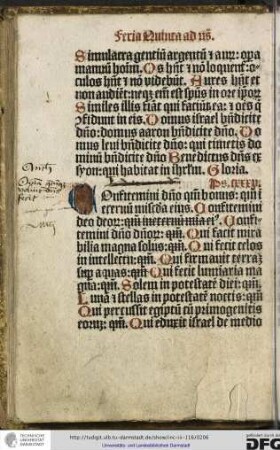 Feria Quinta ad
Simulacra gentiū argentū ⁊ aur: opa
manuū hoīm. Os hn̄t ⁊ nō loquent: o-
culos hn̄t ⁊ nō videbūt. Aures hn̄t et
non audiēt: neqꝫ em̄ est spūs in ore ipoꝝ
Similes illis fiāt qui faciūt ea: ⁊ oēs q̄
fidunt in eis. Domus israel bn̄dicite
dn̄o: domus aaron bn̄dicite dn̄o. Do-
mus leui bn̄dicite dn̄o: qui timetis do
minū bn̄dicite dn̄o Benedictus dn̄s ex
syon: qui habitat in Gloria.
Ps.
Onfitemini dn̄o qm̄ bonus: qm̄ i
eternū mīscdia eius. Confitemini
deo deoꝝ: qm̄ in eternū mīa eiꝰ. Confi-
temini dn̄o dn̄oꝝ: qm̄. Qui facit mira
bilia magna solus: qm̄. Qui fecit celos
in intellectu: qm̄. Qui firmauit terrā
sup aquas: qm̄. Qui fecit luminaria ma
gna: qm̄. Solem in potestatē diei: qm̄.
Lunā ⁊ stellas in potestatē noctis: qm̄.
Qui percussit egiptū cū primogenitis
eoꝝ: qm̄. Qui eduxit israel de medio
http://tudigit.ulb.tu-darmstadt.de/show/inc-iii-116/0206
Universitäts- und Landesbibliothek Darmstadt
TECHNISCHE UNIVERSITÄT DARMSTADT
DFG